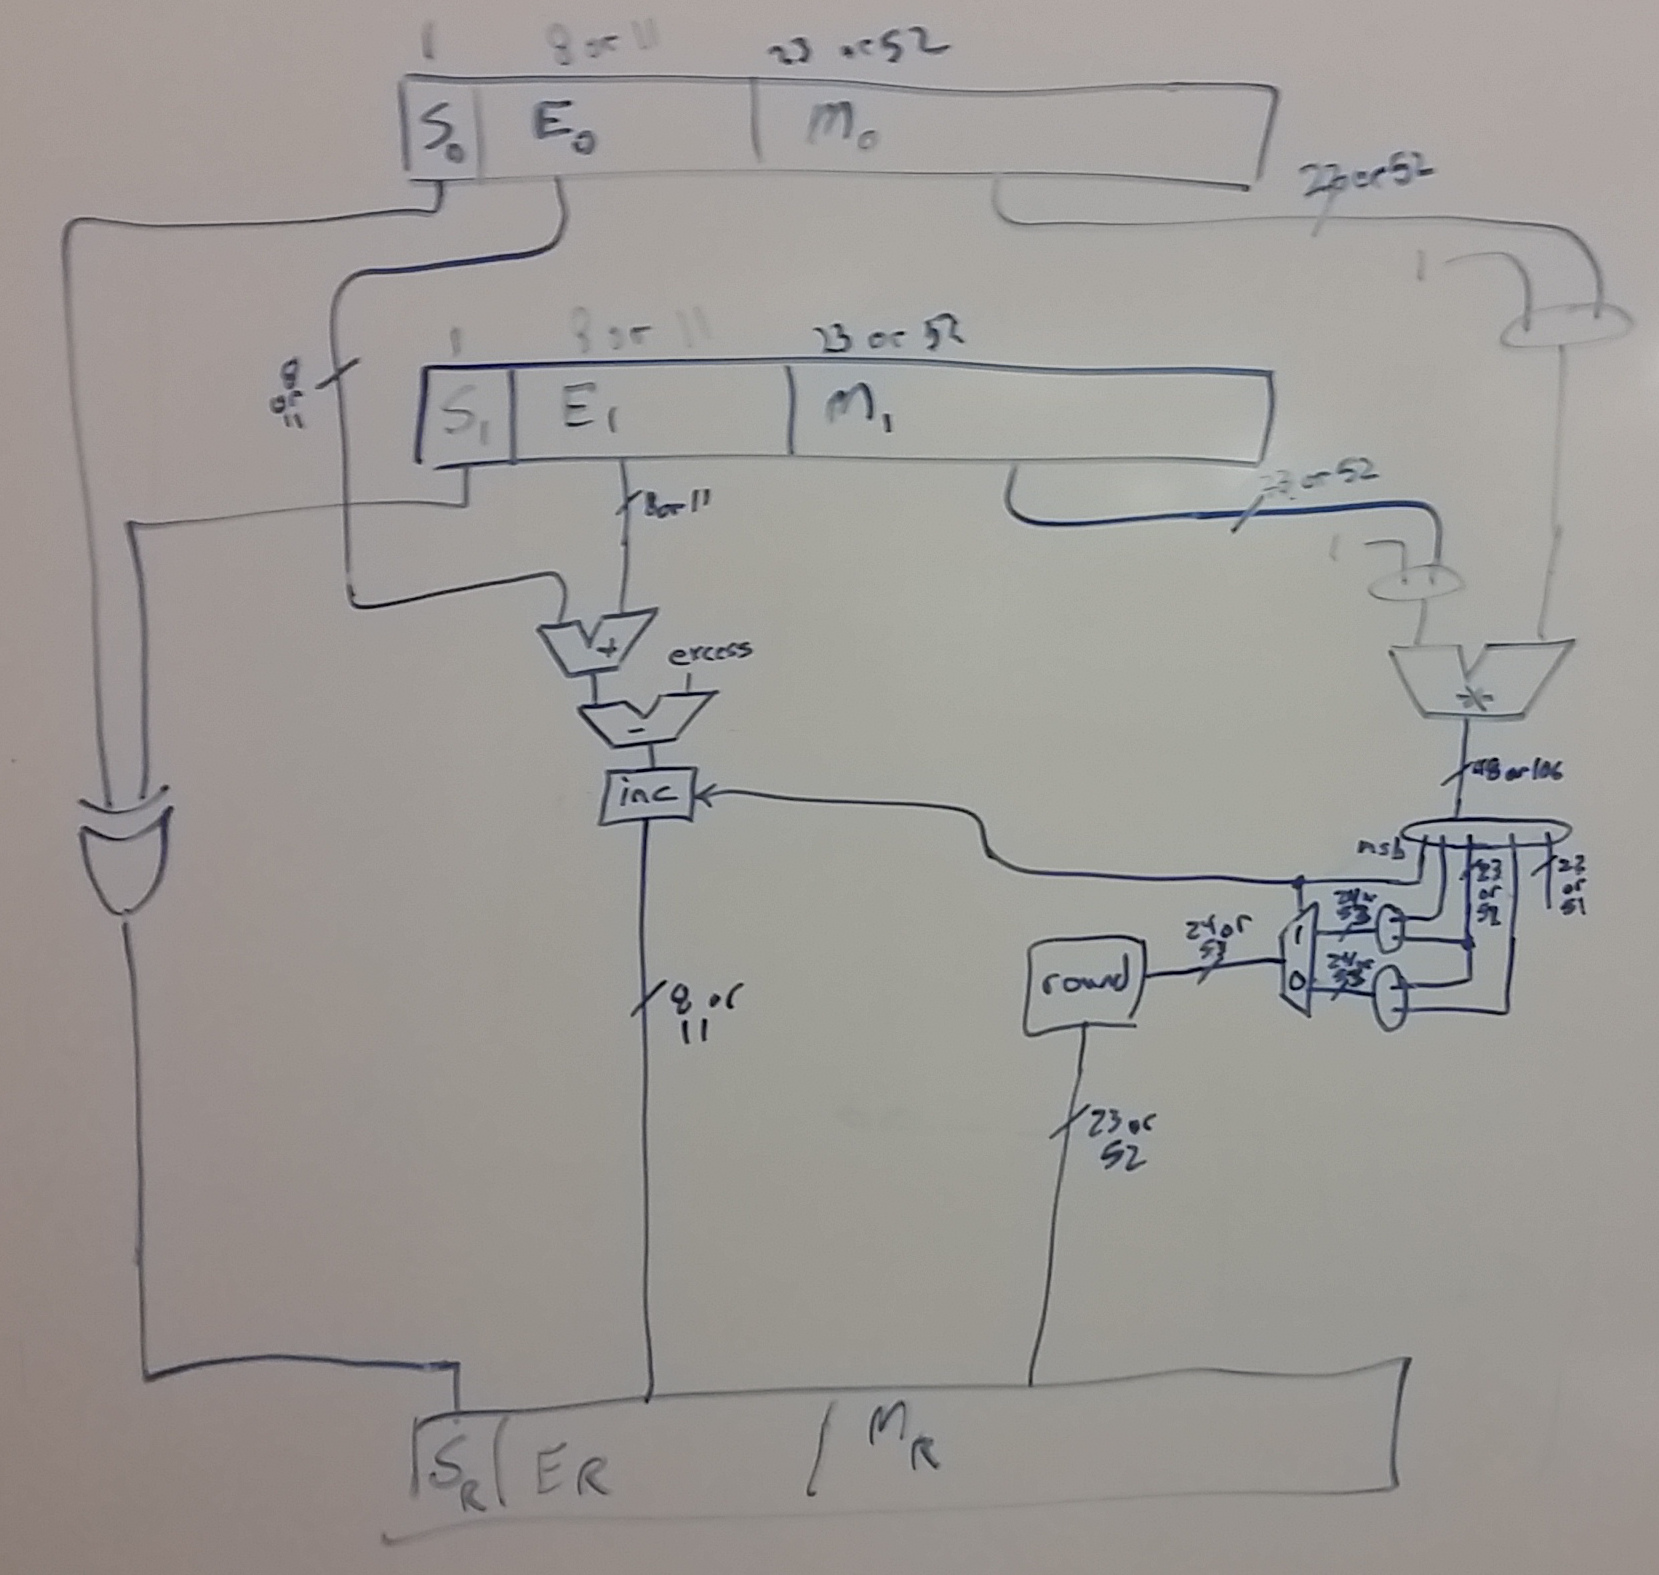 1 8 or 11 23 or 52
S0 E0 M0
23 or 52
1
1 8 or 11 23 or 52
8
or
11
S1 E1 M1
8 or 11
23 or 52
1
+
excess
-
*
inc
48 or 106
msb
23
or
52
23
or
51
24 or
53
1
24 or
53
24 or
53
0
round
8 or
11
23 or
52
SR ER MR